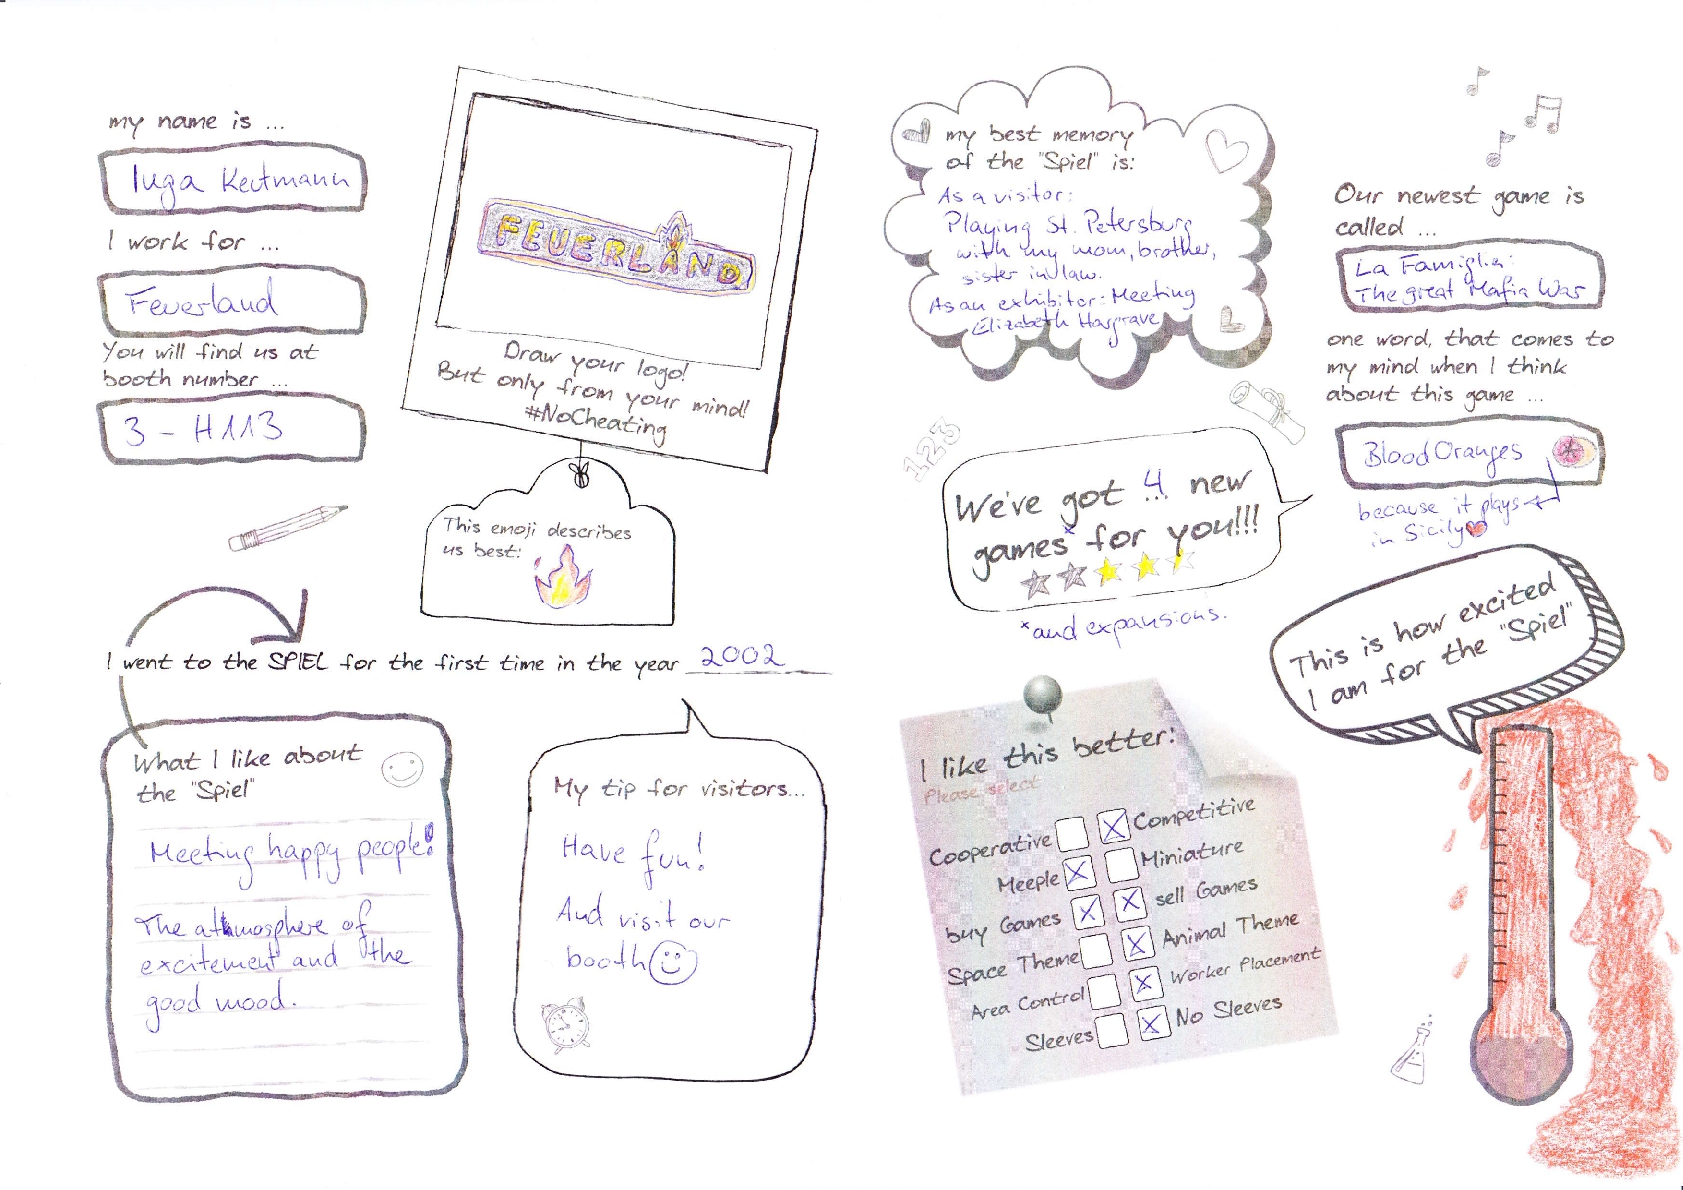 my name is ...
Inga Keutmann
I work for ...
Feuerland
You will find us at
booth number ...
3 - H113
FEUERLAND
Draw your logo!
But only from your mind!
#NoCheating
This emoji describes
us best:
I went to the SPIEL for the first time in the year 2002
What I like about
the "Spiel"
Meeting happy people!
The athmosphere of
excitement and the
good mood.
My tip for visitors...
Have fun!
And visit our
booth
my best memory
of the "Spiel" is:
As a visitor:
Playing St. Petersburg
with my mom, brother,
sister in law.
As an exhibitor: Meeting
Elizabeth Hargrave
123
We've got 4 new
games* for you!!!
*and expansions.
Our newest game is
called ...
La Famiglia:
The great Mafia War
one word, that comes to
my mind when I think
about this game ...
Blood Oranges
because it plays
in Sicily
This is how excited
I am for the "Spiel"
I like this better:
Please select
Cooperative Competitive
Meeple Miniature
buy Games sell Games
Space Theme Animal Theme
Area Control Worker Placement
Sleeves No Sleeves